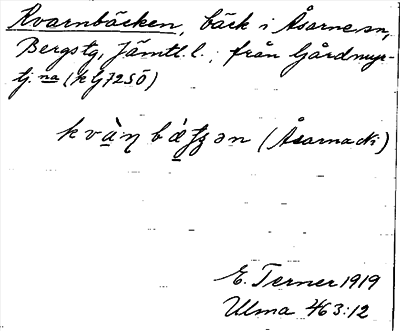 Kvarnbäcken, bäck i Åsarne sn,
Bergs tg, Jämtl. l.; från Gårdmyr-
tj. na (k G7250)
(Åsarna ck)
E. Terner 1919
Ulma 463:12